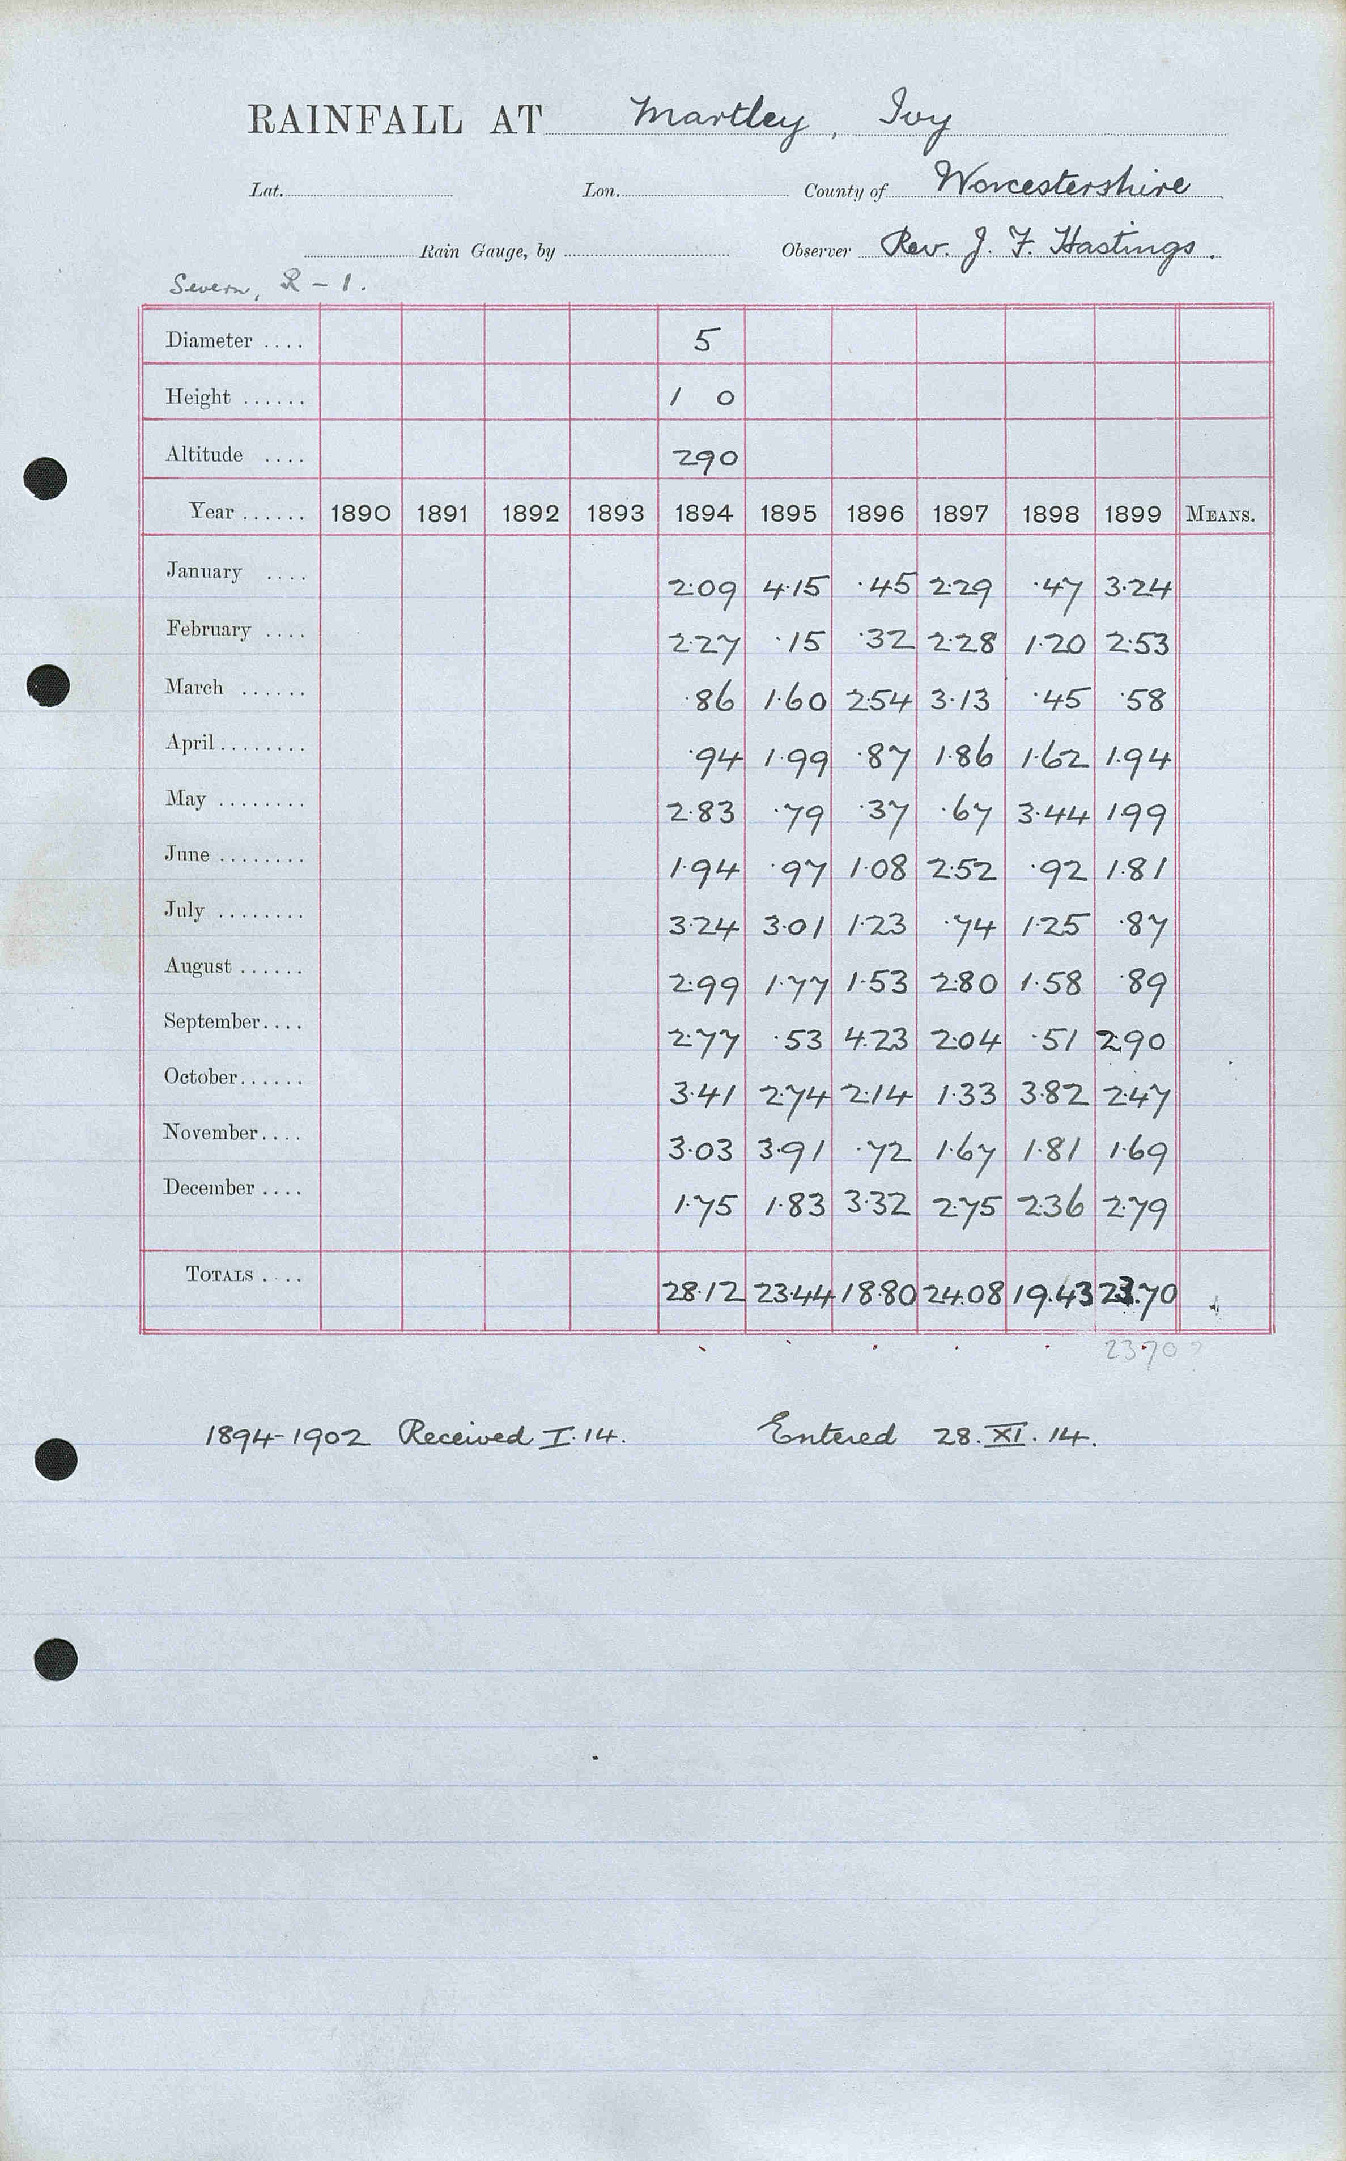 RAINFALL AT Martley, Ivy
Lat. Lon. County of Worcestershire
Rain Gauge, by Observer Rev. J. F. Hastings.
Severn, R - 1.
Diameter .... 5
Height ...... 1 0
Altitude .... 290
Year ...... 1890 1891 1892 1893 1894 1895 1896 1897 1898 1899 MEANS.
January .... 2.09 4.15 .45 2.29 .47 3.24
February .... 2.27 .15 .32 2.28 1.20 2.53
March ...... .86 1.60 2.54 3.13 .45 .58
April ........ .94 1.99 .87 1.86 1.62 1.94
May ........ 2.83 .79 .37 .67 3.44 1.99
June ........ 1.94 .97 1.08 2.52 .92 1.81
July ........ 3.24 3.01 1.23 .74 1.25 .87
August ...... 2.99 1.77 1.53 2.80 1.58 .89
September.... 2.77 .53 4.23 2.04 .51 2.90
October...... 3.41 2.74 2.14 1.33 3.82 2.47
November.... 3.03 3.91 .72 1.67 1.81 1.69
December .... 1.75 1.83 3.32 2.75 2.36 2.79
TOTALS .... 28.12 23.44 18.80 24.08 19.43 23.70
23.70?
1894-1902 Received I.14. Entered 28.XI.14.